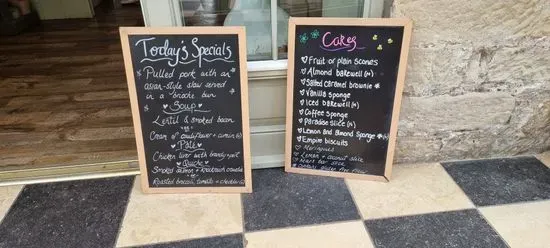 Today's Specials
Pulled pork with an
asian-style slaw served
in a brioche bun
Soup
Lentil & smoked bacon
Cream of cauliflower + cumin (v)
Pâté
Chicken liver with brandy + port
Quiche
Smoked salmon +
Roasted broccoli, tomato + cheddar (v)
Cakes
Fruit or plain scones
Almond bakewell (n)
Salted caramel brownie *
Vanilla sponge
Iced bakewell (n)
Coffee sponge
Paradise slice (n)
Lemon and almond sponge * (n)
Empire biscuits
Meringues
Lemon + coconut slice
Mars bar slice
* Contains gluten free flour